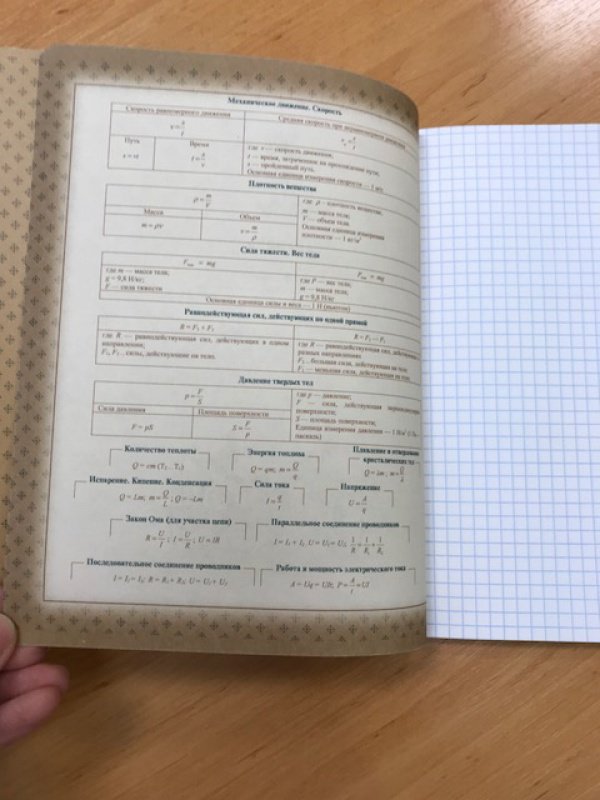 Механическое движение. Скорость
Скорость равномерного движения
Средняя скорость при неравномерном движении
v = s/t
Путь
Время
s = vt
t = s/v
где v — скорость движения;
t — время, затраченное на прохождение пути;
s — пройденный путь.
Основная единица измерения скорости — 1 м/с
Плотность вещества
ρ = m/V
где ρ – плотность вещества;
m — масса тела;
V — объем тела.
Основная единица измерения
плотности — 1 кг/м³
Масса
Объем
m = ρV
v = m/ρ
Сила тяжести. Вес тела
= mg
где m — масса тела;
g = 9,8 Н/кг;
F — сила тяжести
= mg
где P — вес тела;
m — масса тела;
g = 9,8 Н/кг
Основная единица силы и веса — 1 Н (ньютон)
Равнодействующая сил, действующих по одной прямой
R = F₁ + F₂
где R — равнодействующая сил, действующих в одном
направлении;
F₁, F₂ - силы, действующие на тело.
R = F₂ — F₁
где R — равнодействующая сил, действующих в
разных направлениях
F₂ - большая сила, действующая на тело;
F₁ — меньшая сила, действующая на тело.
Давление твердых тел
p = F/S
Сила давления
Площадь поверхности
F = pS
S = F/p
где p — давление;
F — сила, действующая перпендикулярно
поверхности;
S — площадь поверхности;
Единица измерения давления — 1 Н/м² (1 Па —
паскаль)
Количество теплоты
Q = cm (T₂ - T₁)
Энергия топлива
Q = qm; m = Q/q
Плавление и отвердевание
кристаллических тел
Q = λm ; m = Q/λ
Испарение. Кипение. Конденсация
Q = Lm; m = Q/L ; Q = –Lm
Сила тока
I = q/t
Напряжение
U = A/q
Закон Ома (для участка цепи)
R = U/I ; I = U/R ; U = IR
Параллельное соединение проводников
I = I₁ + I₂, U = U₁ = U₂; 1/R = 1/R₁ + 1/R₂
Последовательное соединение проводников
I = I₁ = I₂; R = R₁ + R₂; U = U₁ + U₂
Работа и мощность электрического тока
A = Uq = UIt; P = A/t = UI